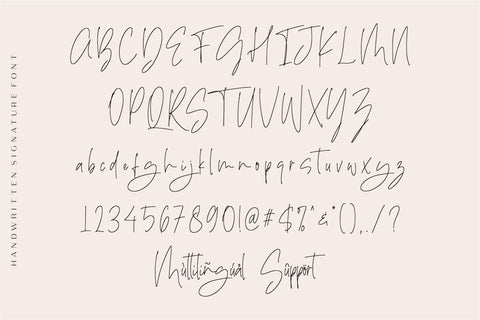 HANDWRITTEN SIGNATURE FONT
ABCDEFGHIJKLMN
OPQRSTUVWXYZ
abcdefghijklmnopqrstuvwxyz
1234567890!@#$%^&*(),./?
Mùltilíñgúâl Süppört